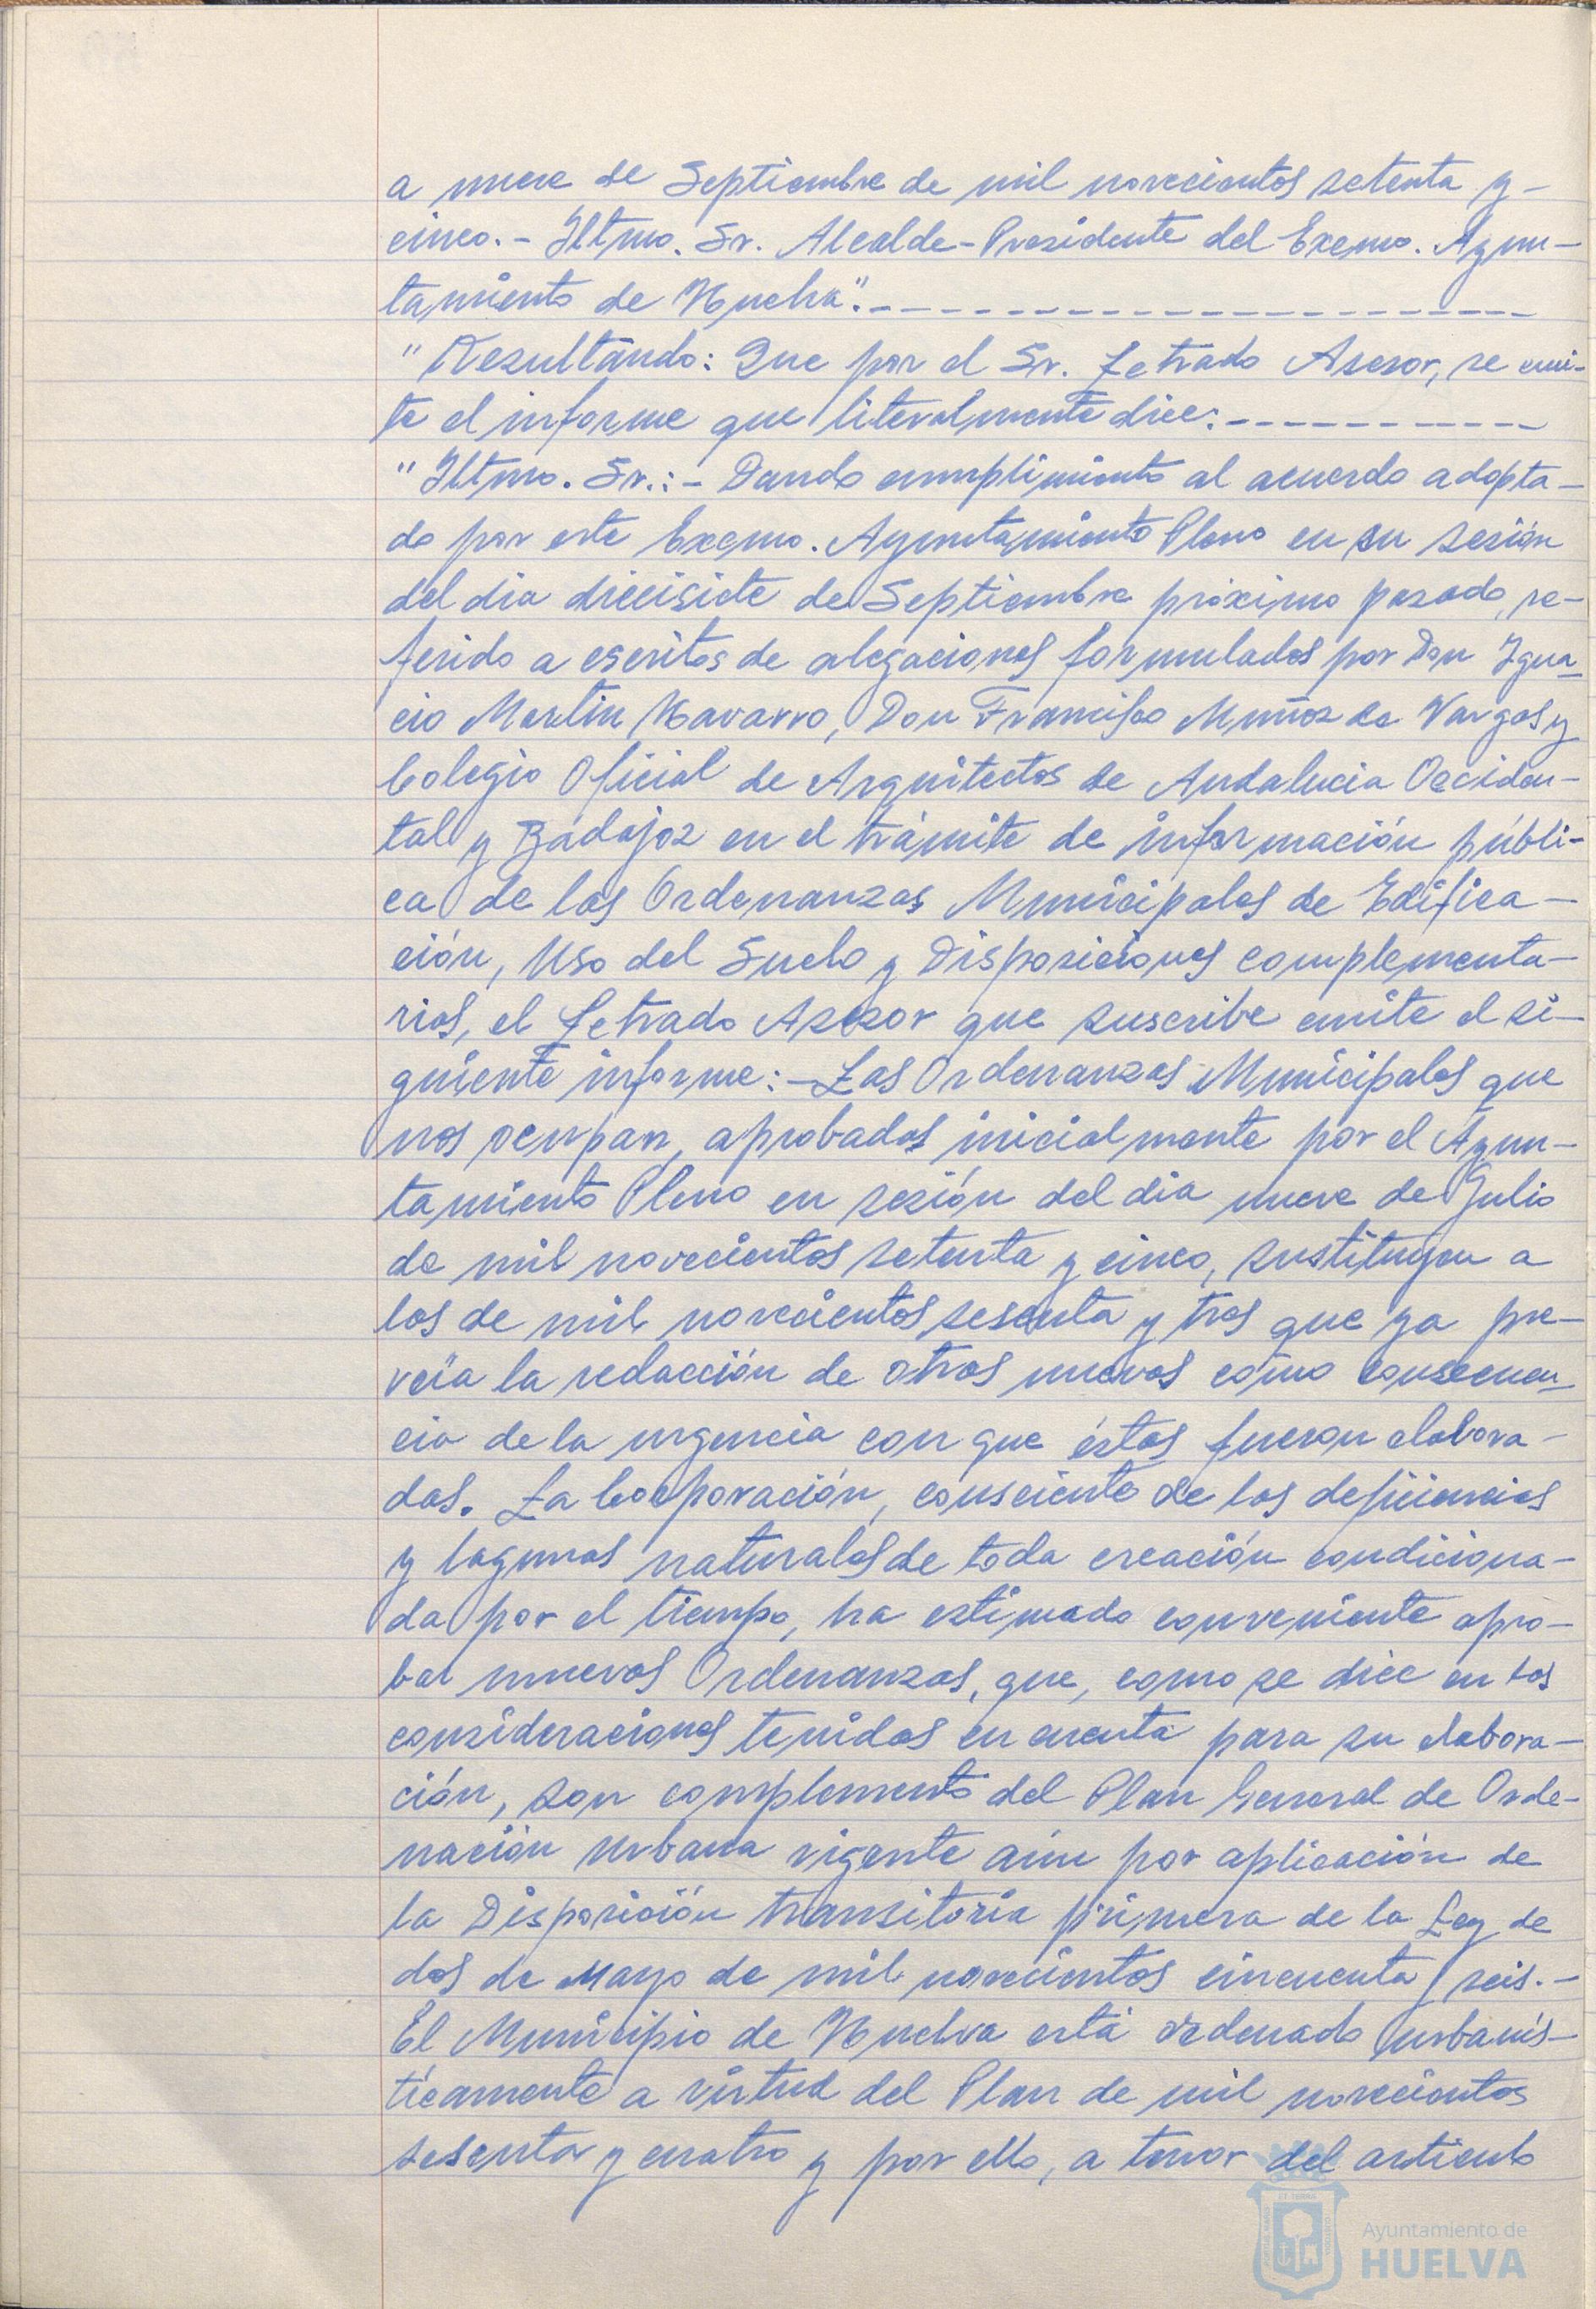 a nueve de Septiembre de mil novecientos setenta y-
cinco.- Iltmo. Sr. Alcalde-Presidente del Excmo. Ayun-
tamiento de Huelva".-----------------------
"Resultando: Que por el Sr. Letrado Asesor, se emi-
te el informe que literalmente dice:-----------
"Iltmo. Sr.:- Dando cumplimiento al acuerdo adopta-
do por este Excmo. Ayuntamiento Pleno en su sesión
del dia diecisiete de Septiembre próximo pasado, re-
ferido a escritos de alegaciones formulados por Don Igna-
cio Martin Navarro, Don Francisco Muñoz de Vargas y
Colegio Oficial de Arquitectos de Andalucia Occiden-
tal y Badajoz en el trámite de información públi-
ca de las Ordenanzas Municipales de Edifica-
ción, Uso del Suelo y Disposiciones complementa-
rias, el Letrado Asesor que suscribe emite el si-
guiente informe:- Las Ordenanzas Municipales que
nos ocupan, aprobadas inicialmente por el Ayun-
tamiento Pleno en sesión del dia nueve de Julio
de mil novecientos setenta y cinco, sustituyen a
las de mil novecientos sesenta y tres que ya pre-
veía la redacción de otras nuevas como consecuen-
cia de la urgencia con que éstas fueron elabora-
das. La Corporación, consciente de las deficiencias
y lagunas naturales de toda creación condiciona-
da por el tiempo, ha estimado conveniente apro-
bar nuevas Ordenanzas, que, como se dice en las
consideraciones tenidas en cuenta para su elabora-
ción, son complemento del Plan General de Orde-
nación Urbana vigente aún por aplicación de
la Disposición transitoria primera de la Ley de
dos de Mayo de mil novecientos cincuenta y seis.-
El Municipio de Huelva está ordenado urbanís-
ticamente a virtud del Plan de mil novecientos
sesenta y cuatro y por ello, a tenor del articulo
Ayuntamiento de
HUELVA